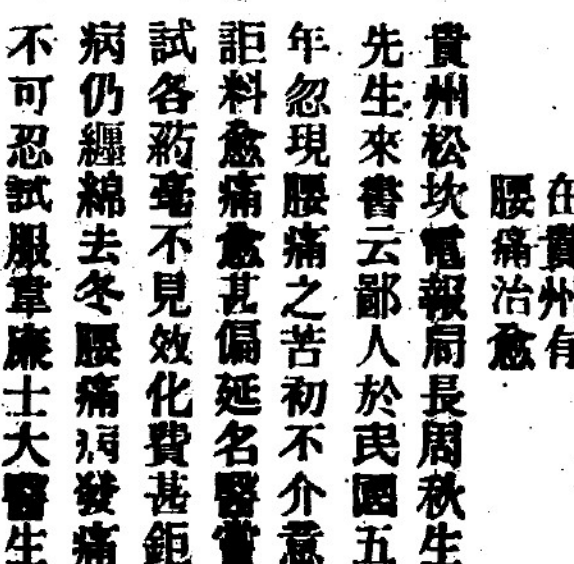 在貴州有
腰痛治愈
貴州松坎電報局長周秋生
先生來書云鄙人於民國五
年忽現腰痛之苦初不介意
詎料愈痛愈甚偏延名醫嘗
試各葯毫不見效化費甚鉅
病仍纏綿去冬腰痛病發痛
不可忍試服韋廉士大醫生